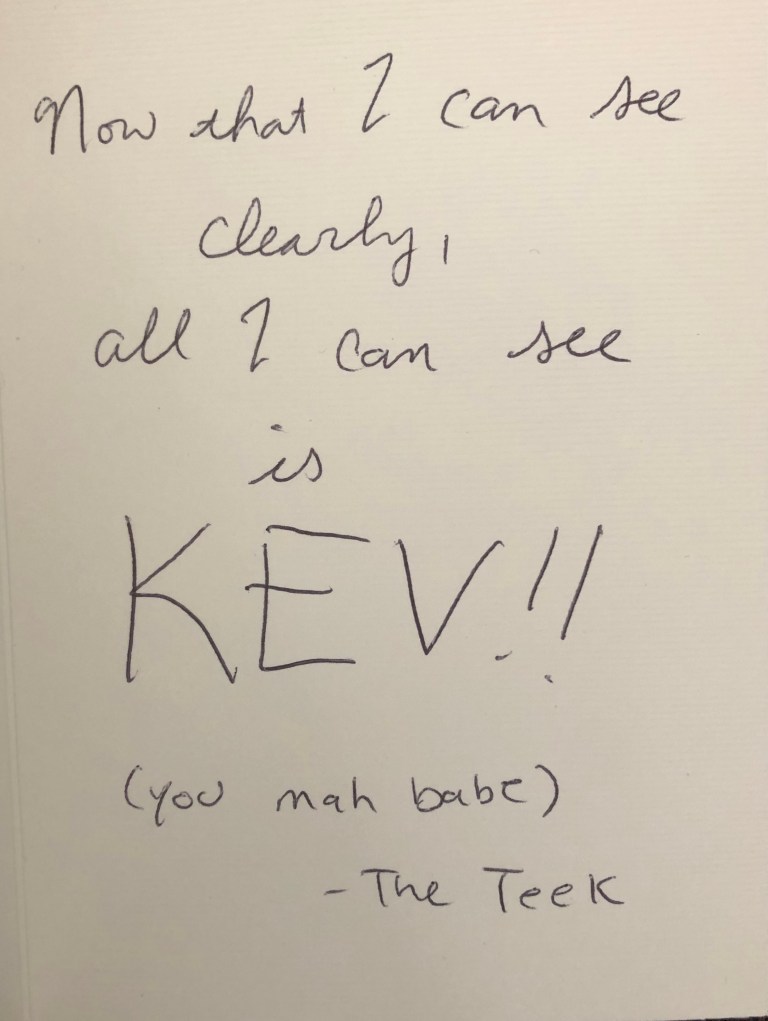 Now that I can see
clearly,
all I can see
is
KEV!!
(you mah babe)
- The Teek